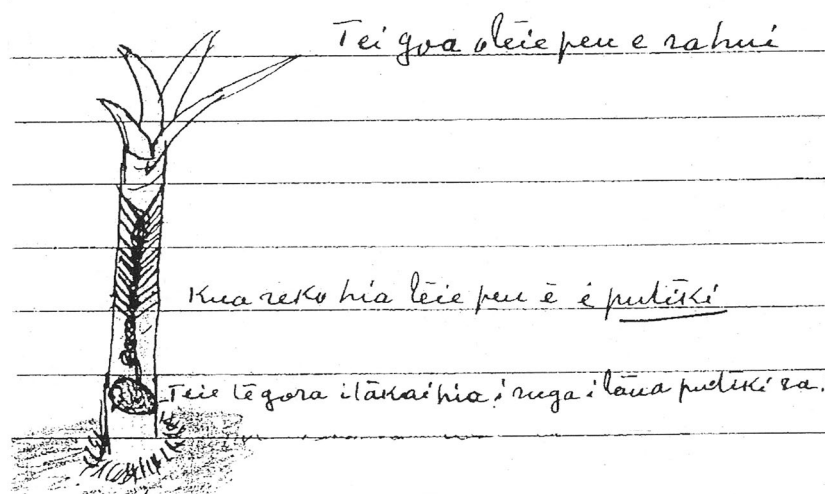 Tei goa o tēie peu e rahui
Kua reko hia tēie peu ē é putīki
Teie tēgora i tākaihia i ruga i tāua putīki ra.